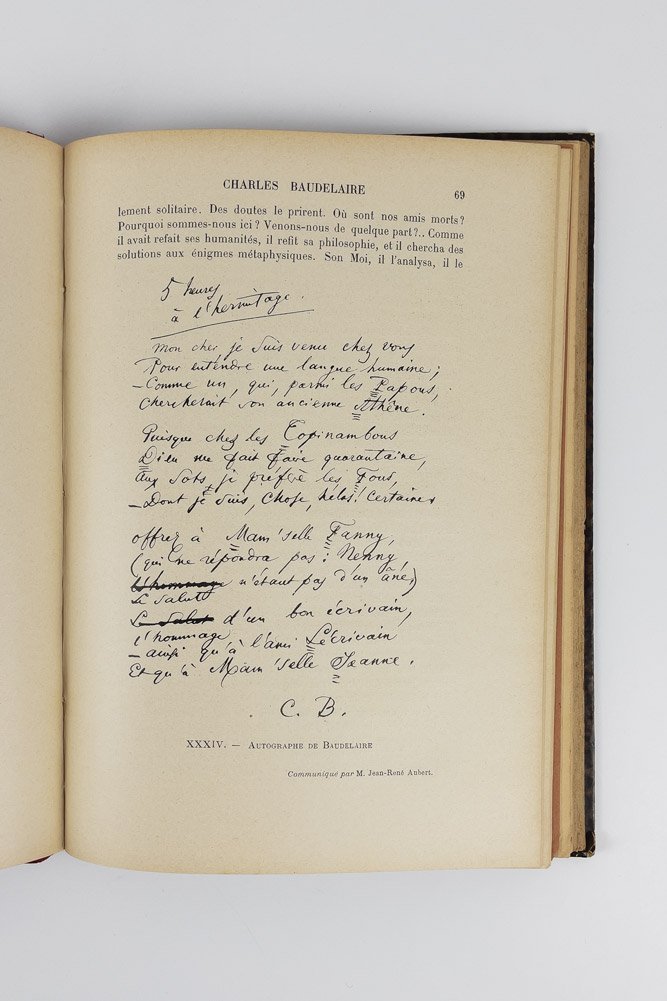 CHARLES BAUDELAIRE 69
lement solitaire. Des doutes le prirent. Où sont nos amis morts?
Pourquoi sommes-nous ici? Venons-nous de quelque part?.. Comme
il avait refait ses humanités, il refit sa philosophie, et il chercha des
solutions aux énigmes métaphysiques. Son Moi, il l'analysa, il le
5 heures
à l'hermitage.
Mon cher, je suis venu chez vous
Pour entendre une langue humaine;
— Comme un, qui, parmi les Papous,
Chercherait son ancienne Athêne.
Puisque chez les Topinambous
Dieu me fait faire quarantaine,
Aux Sots, je préfère les Fous,
— Dont je suis, chose, hélas! certaine.
offrez à Mam'selle Fanny,
(qui ne répondra pas: Nenny,
l'hommage n'étant pas d'un âne,)
Le Salut
Le Salut d'un bon écrivain,
l'hommage
— ainsi qu'à l'ami Lécrivain
Et qu'à Mam'selle Jeanne.
C. B.
XXXIV. — AUTOGRAPHE DE BAUDELAIRE
Communiqué par M. Jean-René Aubert.